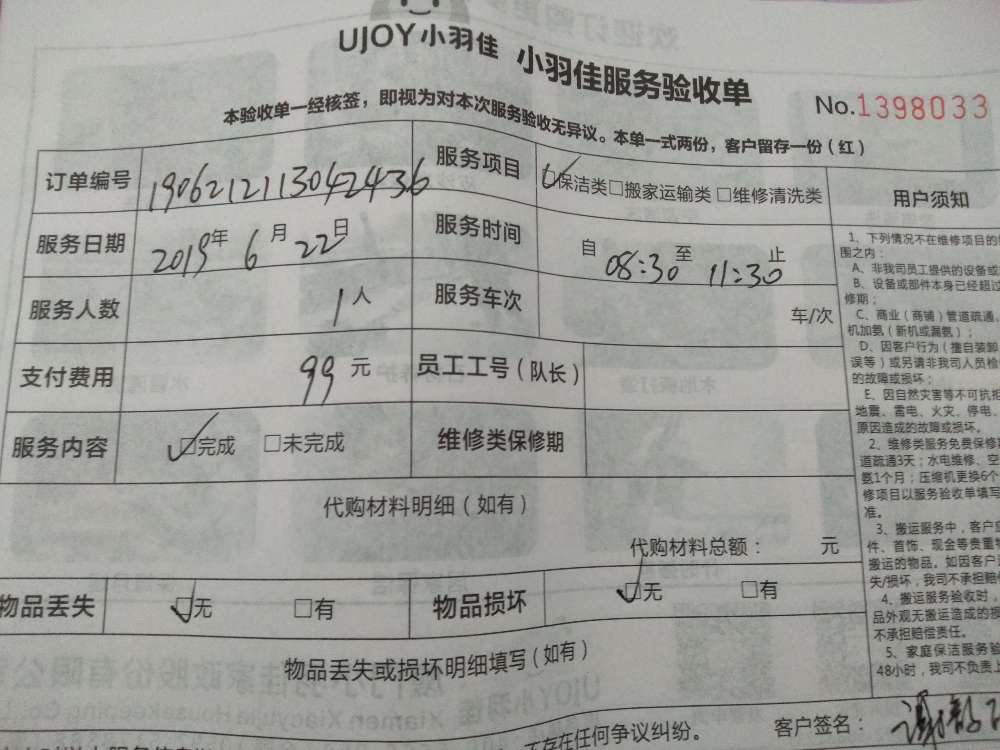 UJOY小羽佳 小羽佳服务验收单
No.1398033
本验收单一经核签，即视为对本次服务验收无异议。本单一式两份，客户留存一份（红）
订单编号 190621211304​2436 服务项目 保洁类 □搬家运输类 □维修清洗类 用户须知
服务日期 2019年 6月 22日 服务时间 自 08:30 至 11:30 止
服务人数 1人 服务车次 车/次
支付费用 99元 员工工号（队长）
服务内容 ☑完成 □未完成 维修类保修期
代购材料明细（如有）
代购材料总额： 元
物品丢失 ☑无 □有 物品损坏 ☑无 □有
物品丢失或损坏明细填写（如有）
1、下列情况不在维修项目的
围之内：
A、非我司员工提供的设备或
B、设备或部件本身已经超过
修期；
C、商业（商铺）管道疏通、
机加氨（新机或漏氨）；
D、因客户行为（擅自装卸
误等）或另请非我司人员检
的故障或损坏；
E、因自然灾害等不可抗拒
地震、雷电、火灾、停电、
原因造成的故障或损坏。
2、维修类服务免费保修
道疏通3天；水电维修、空
氨1个月；压缩机更换6个
修项目以服务验收单填写
准。
3、搬运服务中，客户应
件、首饰、现金等贵重物
搬运的物品。如因客户
失/损坏，我司不承担赔
4、搬运服务验收时，
品外观无搬运造成的损
不承担赔偿责任。
5、家庭保洁服务验
48小时，我司不负责
不存在任何争议纠纷。
客户签名：